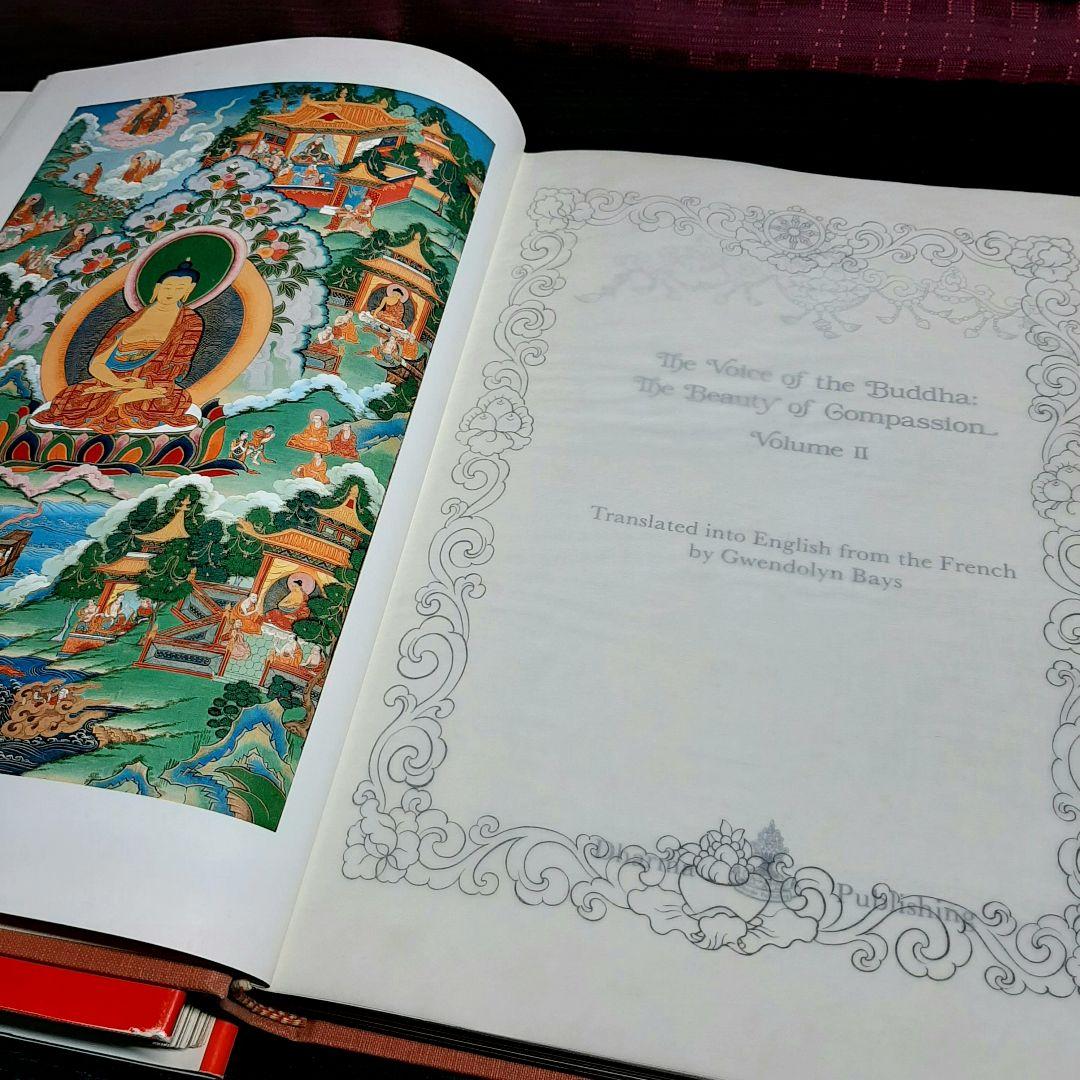 The Voice of the Buddha:
The Beauty of Compassion
Volume II
Translated into English from the French
by Gwendolyn Bays
Dharma Publishing